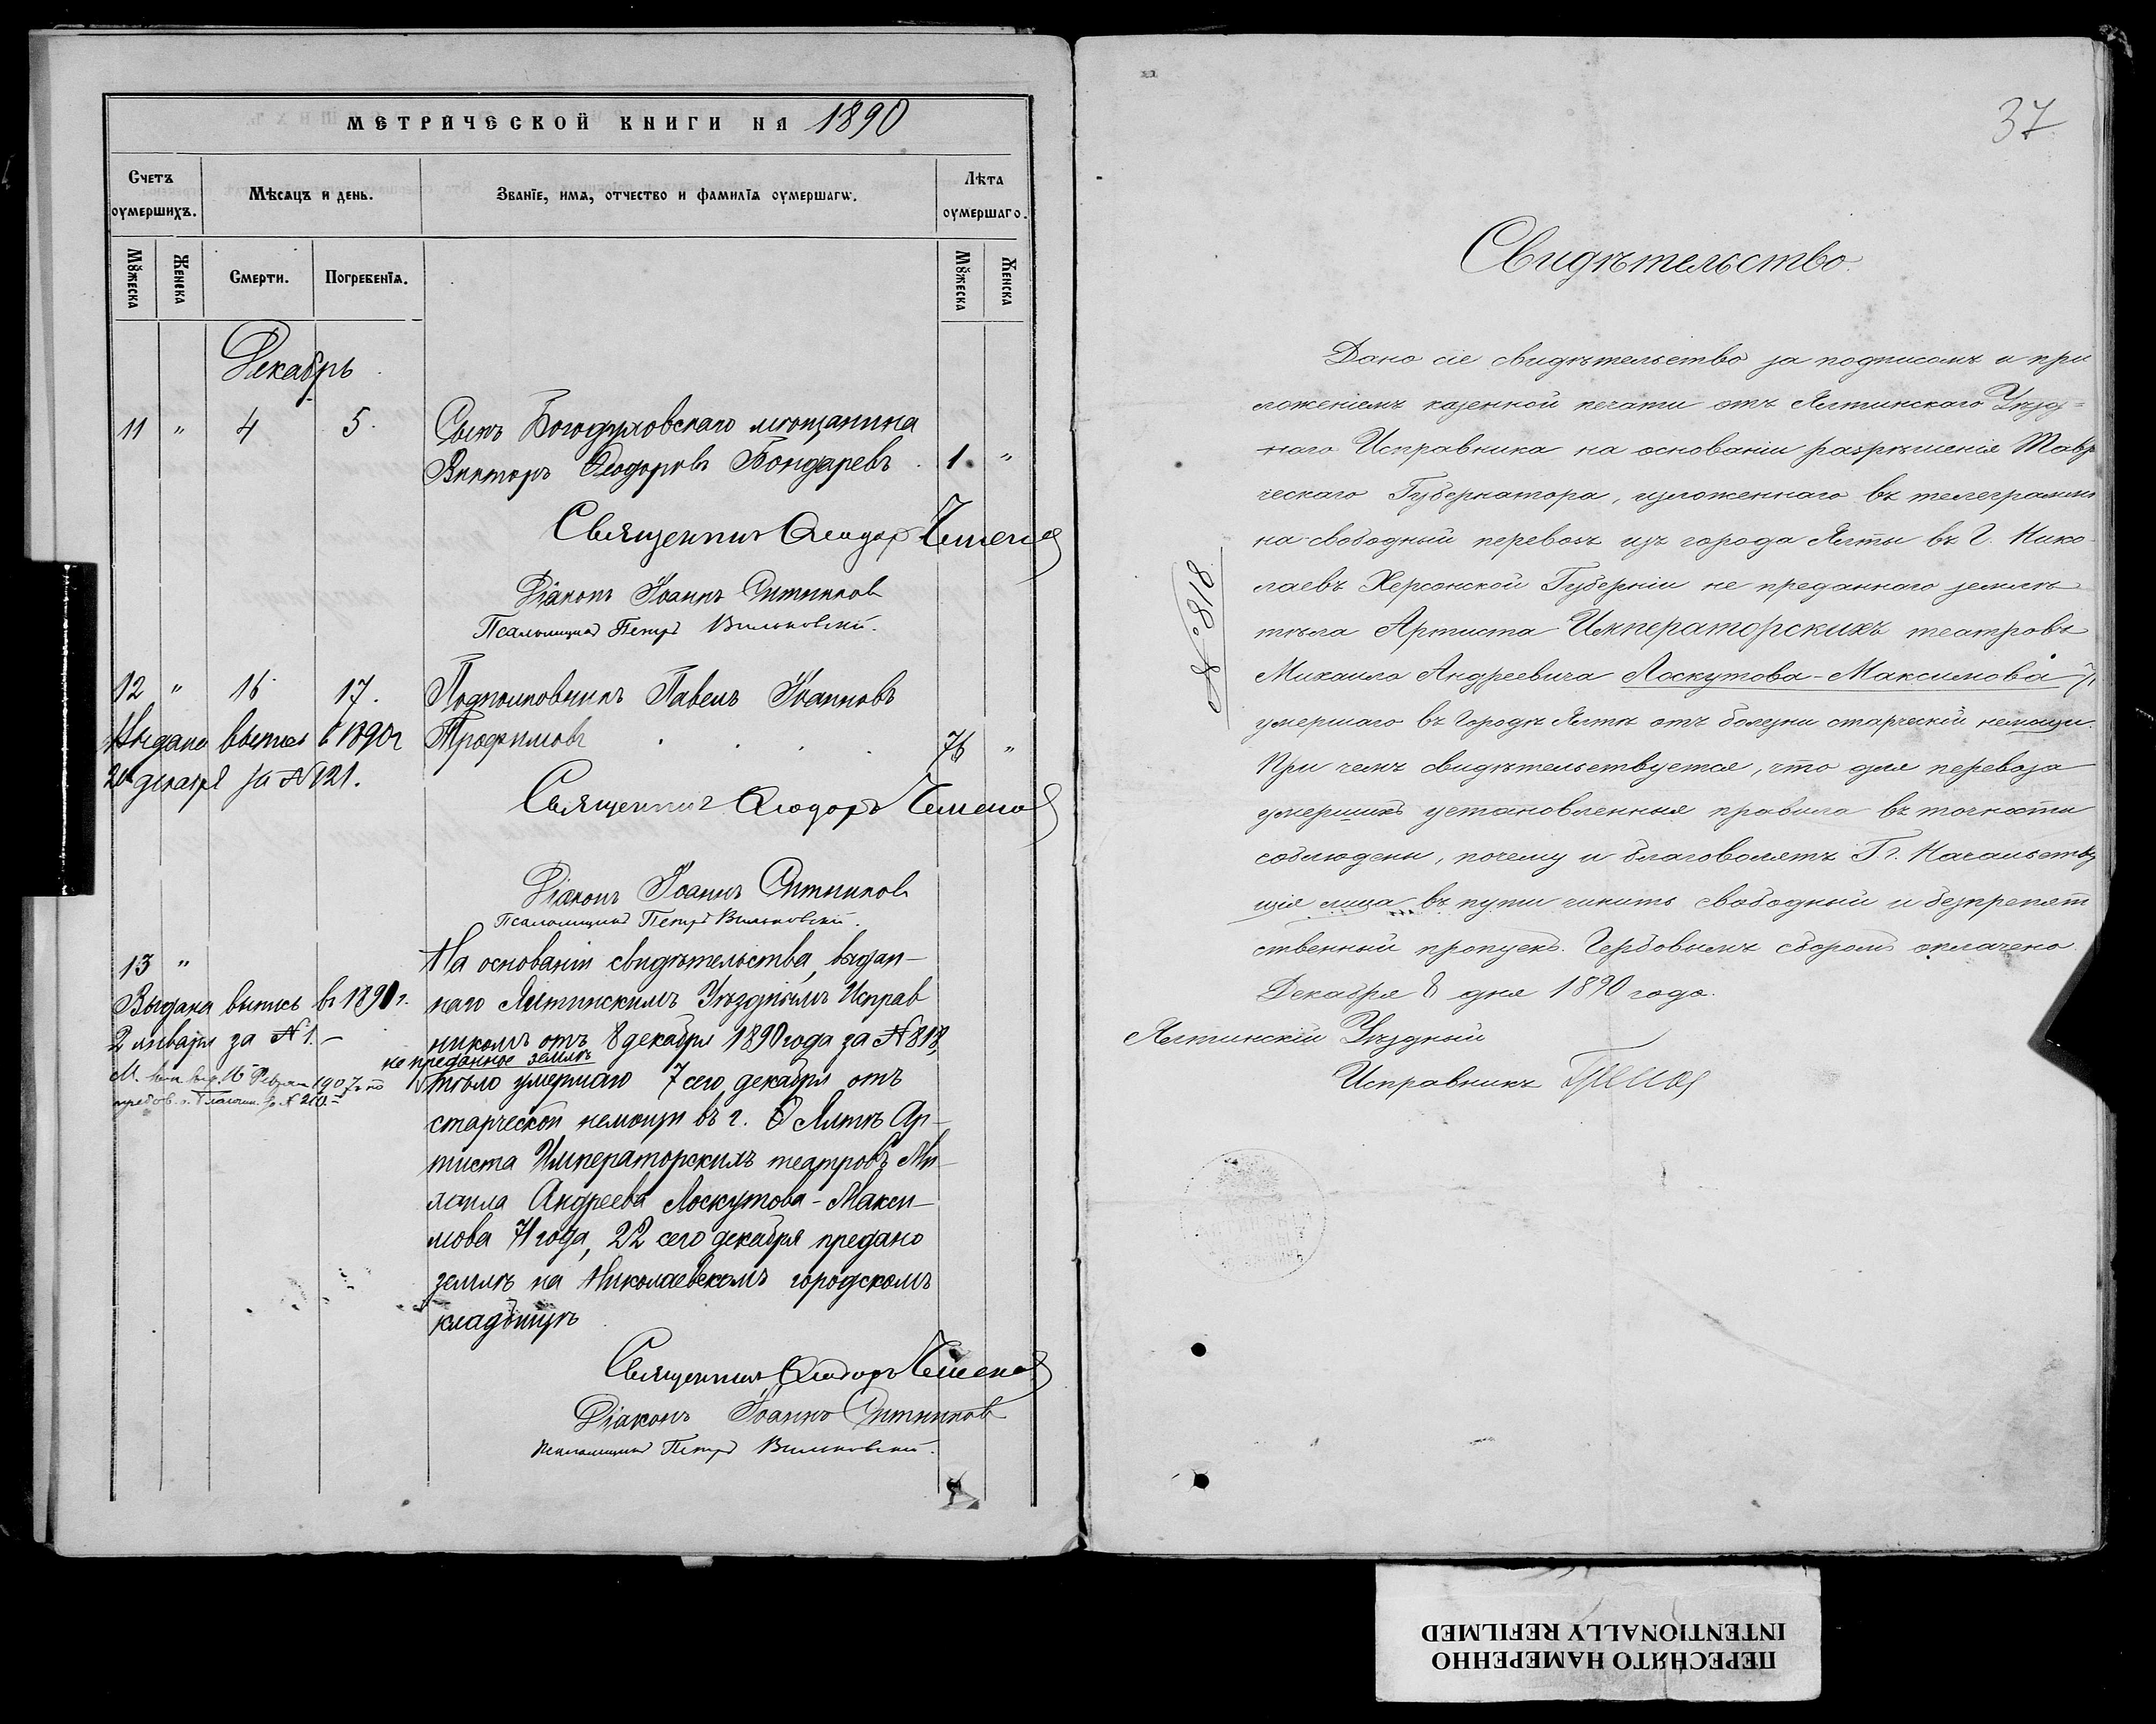 МЕТРИЧЕСКОЙ КНИГИ НА 1890
Счетъ оумершихъ.
Мѣсяцъ и день.
Званїе, имѧ, отчество и фамилїѧ оумершагѡ.
Лѣта оумершаго.
Мꙋжеска
Женска
Смерти.
Погребенїѧ.
Мꙋжеска
Женска
Декабрь
11 " 4 5. Сынъ Богодуховскаго мѣщанина
Викторъ Ѳеодоровъ Бондаревъ 1. "
Священникъ Ѳеодоръ
Діаконъ Іоаннъ Ситниковъ
Псаломщикъ Петръ Вильковскій.
12 " 16 17. Подполковникъ Павелъ Іоанновъ
Выдана выпись въ 1890 г. Трофимовъ 76 "
декабря за № 121.
Священникъ Ѳеодоръ
Діаконъ Іоаннъ Ситниковъ
Псаломщикъ Петръ Вильковскій.
13 " На основаніи свидѣтельства, выдан-
Выдана выпись въ 1891 г. наго Ялтинскимъ Уѣзднымъ Исправ
2 января за № 1. — никомъ отъ 8 декабря 1890 года за № 818,
не преданное землѣ
М. 16 Февраля 1907 г. по тѣло умершаго 7 сего декабря отъ
за № 210.
старческой немощи въ г. Ялтѣ Ар-
тиста Императорскихъ театровъ Ми-
хаила Андреева Лоскутова-Макси-
мова 71 года, 22 сего декабря предано
землѣ на Николаевскомъ городскомъ
кладбищѣ
Священникъ Ѳеодоръ
Діаконъ Іоаннъ Ситниковъ
Псаломщикъ Петръ Вильковскій.
37
Свидѣтельство.
Дано сіе свидѣтельство за подписомъ и при
ложеніемъ казенной печати отъ Ялтинскаго Уѣзд=
наго Исправника на основаніи разрѣшенія Тавр
ческаго Губернатора, изложеннаго въ телеграммѣ
на свободный перевозъ изъ города Ялты въ Г. Нико-
лаевъ Херсонской Губерніи не преданнаго землѣ
тѣла Артиста Императорскихъ театровъ
Михаила Андреевича Лоскутова-Максимова 71
умершаго въ Городѣ Ялтѣ отъ болезни старческій немощи.
При чемъ свидѣтельствуется, что для перевоза
умершихъ установленныя правила въ точности
соблюдены, почему и благоволятъ Г.г. Начальству
щія лица въ пути чинить свободный и безпрепят
ственный пропускъ. Гербовымъ сборомъ оплачено.
Декабря 8 дня 1890 года.
Ялтинскій Уѣздный
Исправникъ
№ 818
ПЕРЕСНЯТО НАМЕРЕННО
INTENTIONALLY REFILMED